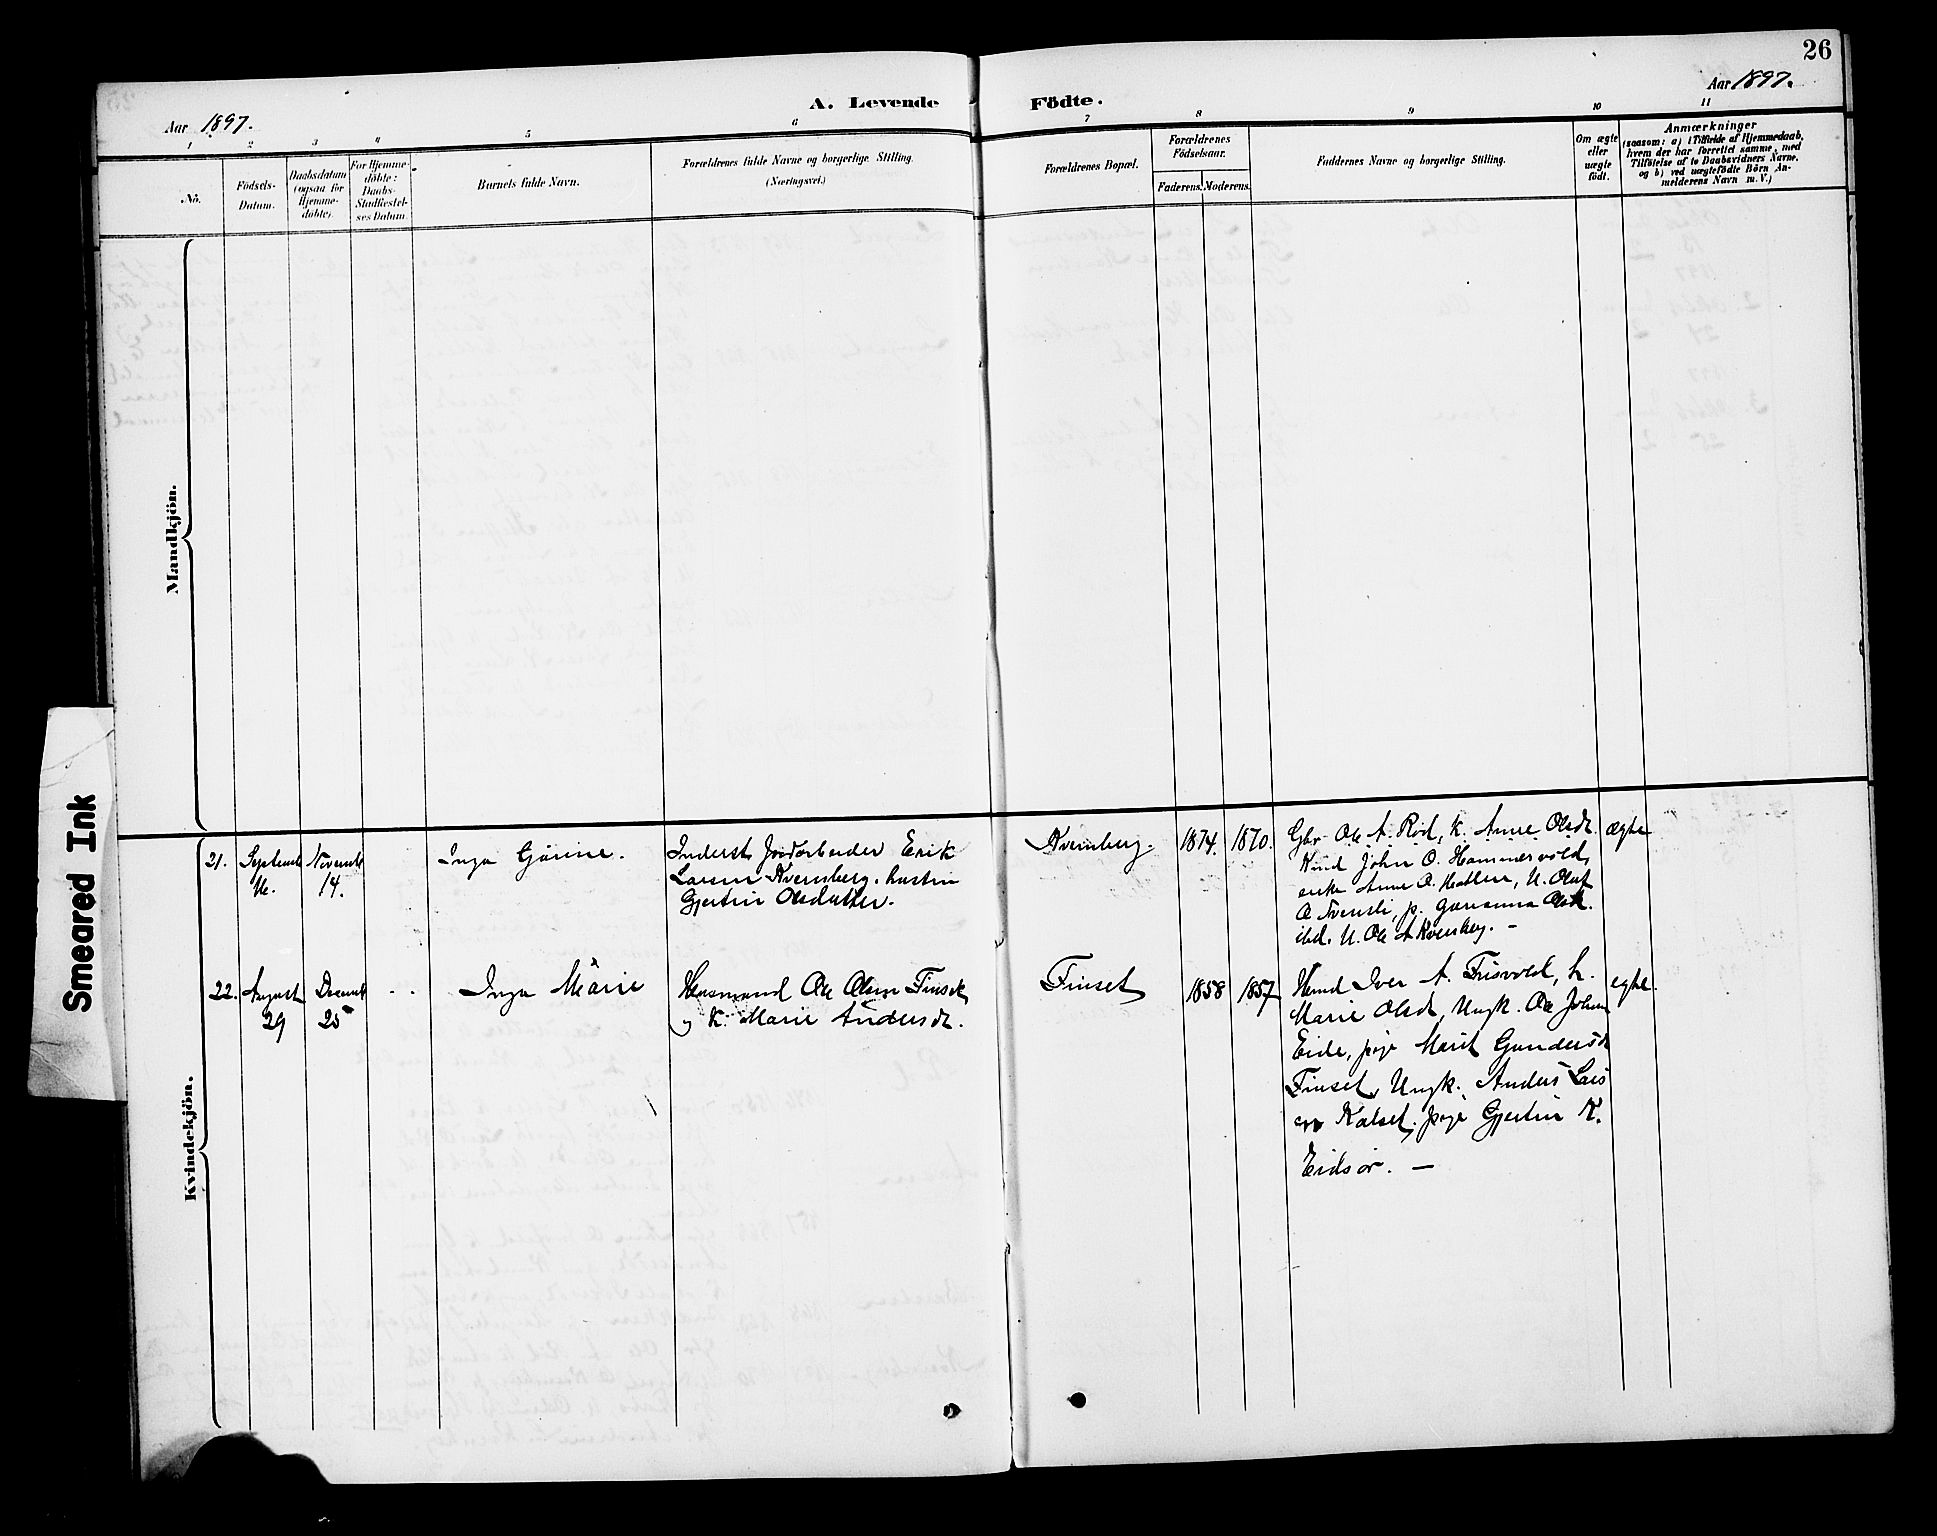 26
A. Levende Födte.
Aar 1897.
Aar 1897.
1 2 3 4 5 6 7 8 9 10 11
No.
Födsels-
Datum.
Daabsdatum
(ogsaa for
Hjemme-
döbte).
For Hjemme-
döbte:
Daabs-
Stadfæstel-
ses Datum.
Barnets fulde Navn.
Forældrenes fulde Navne og borgerlige Stilling.
(Næringsvei.)
Forældrenes Bopæl.
Forældrenes
Födselsaar.
Faderens. Moderens.
Faddernes Navne og borgerlige Stilling.
Om ægte
eller
uægte
födt.
Anmærkninger
(saasom: a) i Tilfælde af Hjemmedaab,
hvem der har forrettet samme, med
Tilföielse af to Daabsvidners Navne,
og b) ved uægtefödte Börn An-
melderens Navn m. V.)
Mandkjön.
Kvindekjön.
21.
Novemb
14.
Inga
Erik
Larsen Kvernberg. hustru
Gjertin Olsdatter.
Kvernberg.
1874. 1870.
Gbr Ole A. Rød, K. Anne Olsdt.
John O. Hammervold,
enke Anne O. U. Olaf
O. p. Olsdt.
ibd. U. Ole A Kvernberg. —
ægte
22.
August
29
Decemb
25
- -
Inga Marie
Husmand Ole Olsen Finset
og K. Marie Andersdt.
Finset
1858 1857
Husmd Iver A. Frisvold, K.
Marie Olsdt, Ungk. Ole Johan
Eide, pige Marit Gundersdt
Finset, Ungk. Anders Lars
en Kalset, pige Gjertin K.
Eidsør. —
egte.
Smeared Ink